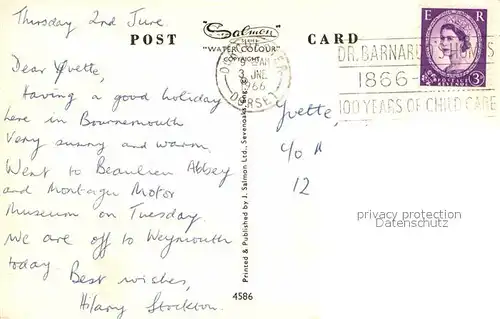 Thursday 2nd June.
POST
"Salmon"
SERIES
"WATER COLOUR"
COPYRIGHT
CARD
E R
3D
9 - AM
3 JNE
1966
DORSET
DR. BARNARDO'S HOMES
1866-
100 YEARS OF CHILD CARE
Dear Yvette,
Having a good holiday
here in Bournemouth
Very sunny and warm.
Went to Beaulieu Abbey
and Montagu Motor
Museum on Tuesday.
We are off to Weymouth
today.
Best wishes,
Hilary Stockton.
Printed & Published by J. Salmon Ltd., Sevenoaks, Eng.
4586
Yvette,
c/o
12
privacy protection
Datenschutz